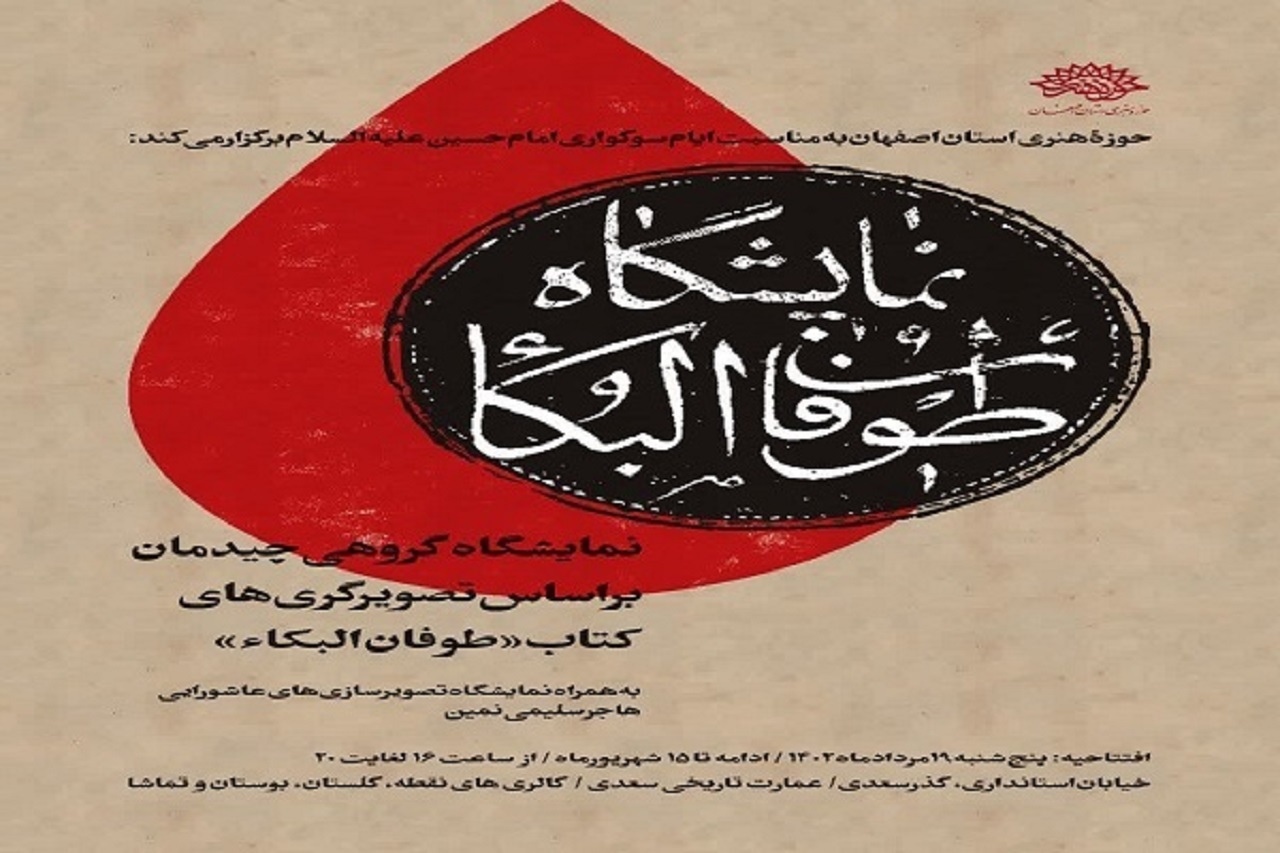 حوزه هنری استان اصفهان
حوزهٔ هنری استان اصفهان به مناسبت ایام سوگواری امام حسین علیه السلام برگزار می‌کند:
نمایشگاه
طوفان البکاء
نمایشگاه گروهی چیدمان
براساس تصویرگری‌های
کتاب «طوفان البکاء»
به همراه نمایشگاه تصویرسازی‌های عاشورایی
هاجر سلیمی نمین
افتتاحیه: پنج‌شنبه ۱۹ مردادماه ۱۴۰۲ / ادامه تا ۱۵ شهریورماه / از ساعت ۱۶ لغایت ۲۰
خیابان استانداری، گذر سعدی / عمارت تاریخی سعدی / گالری های نقطه، گلستان، بوستان و تماشا